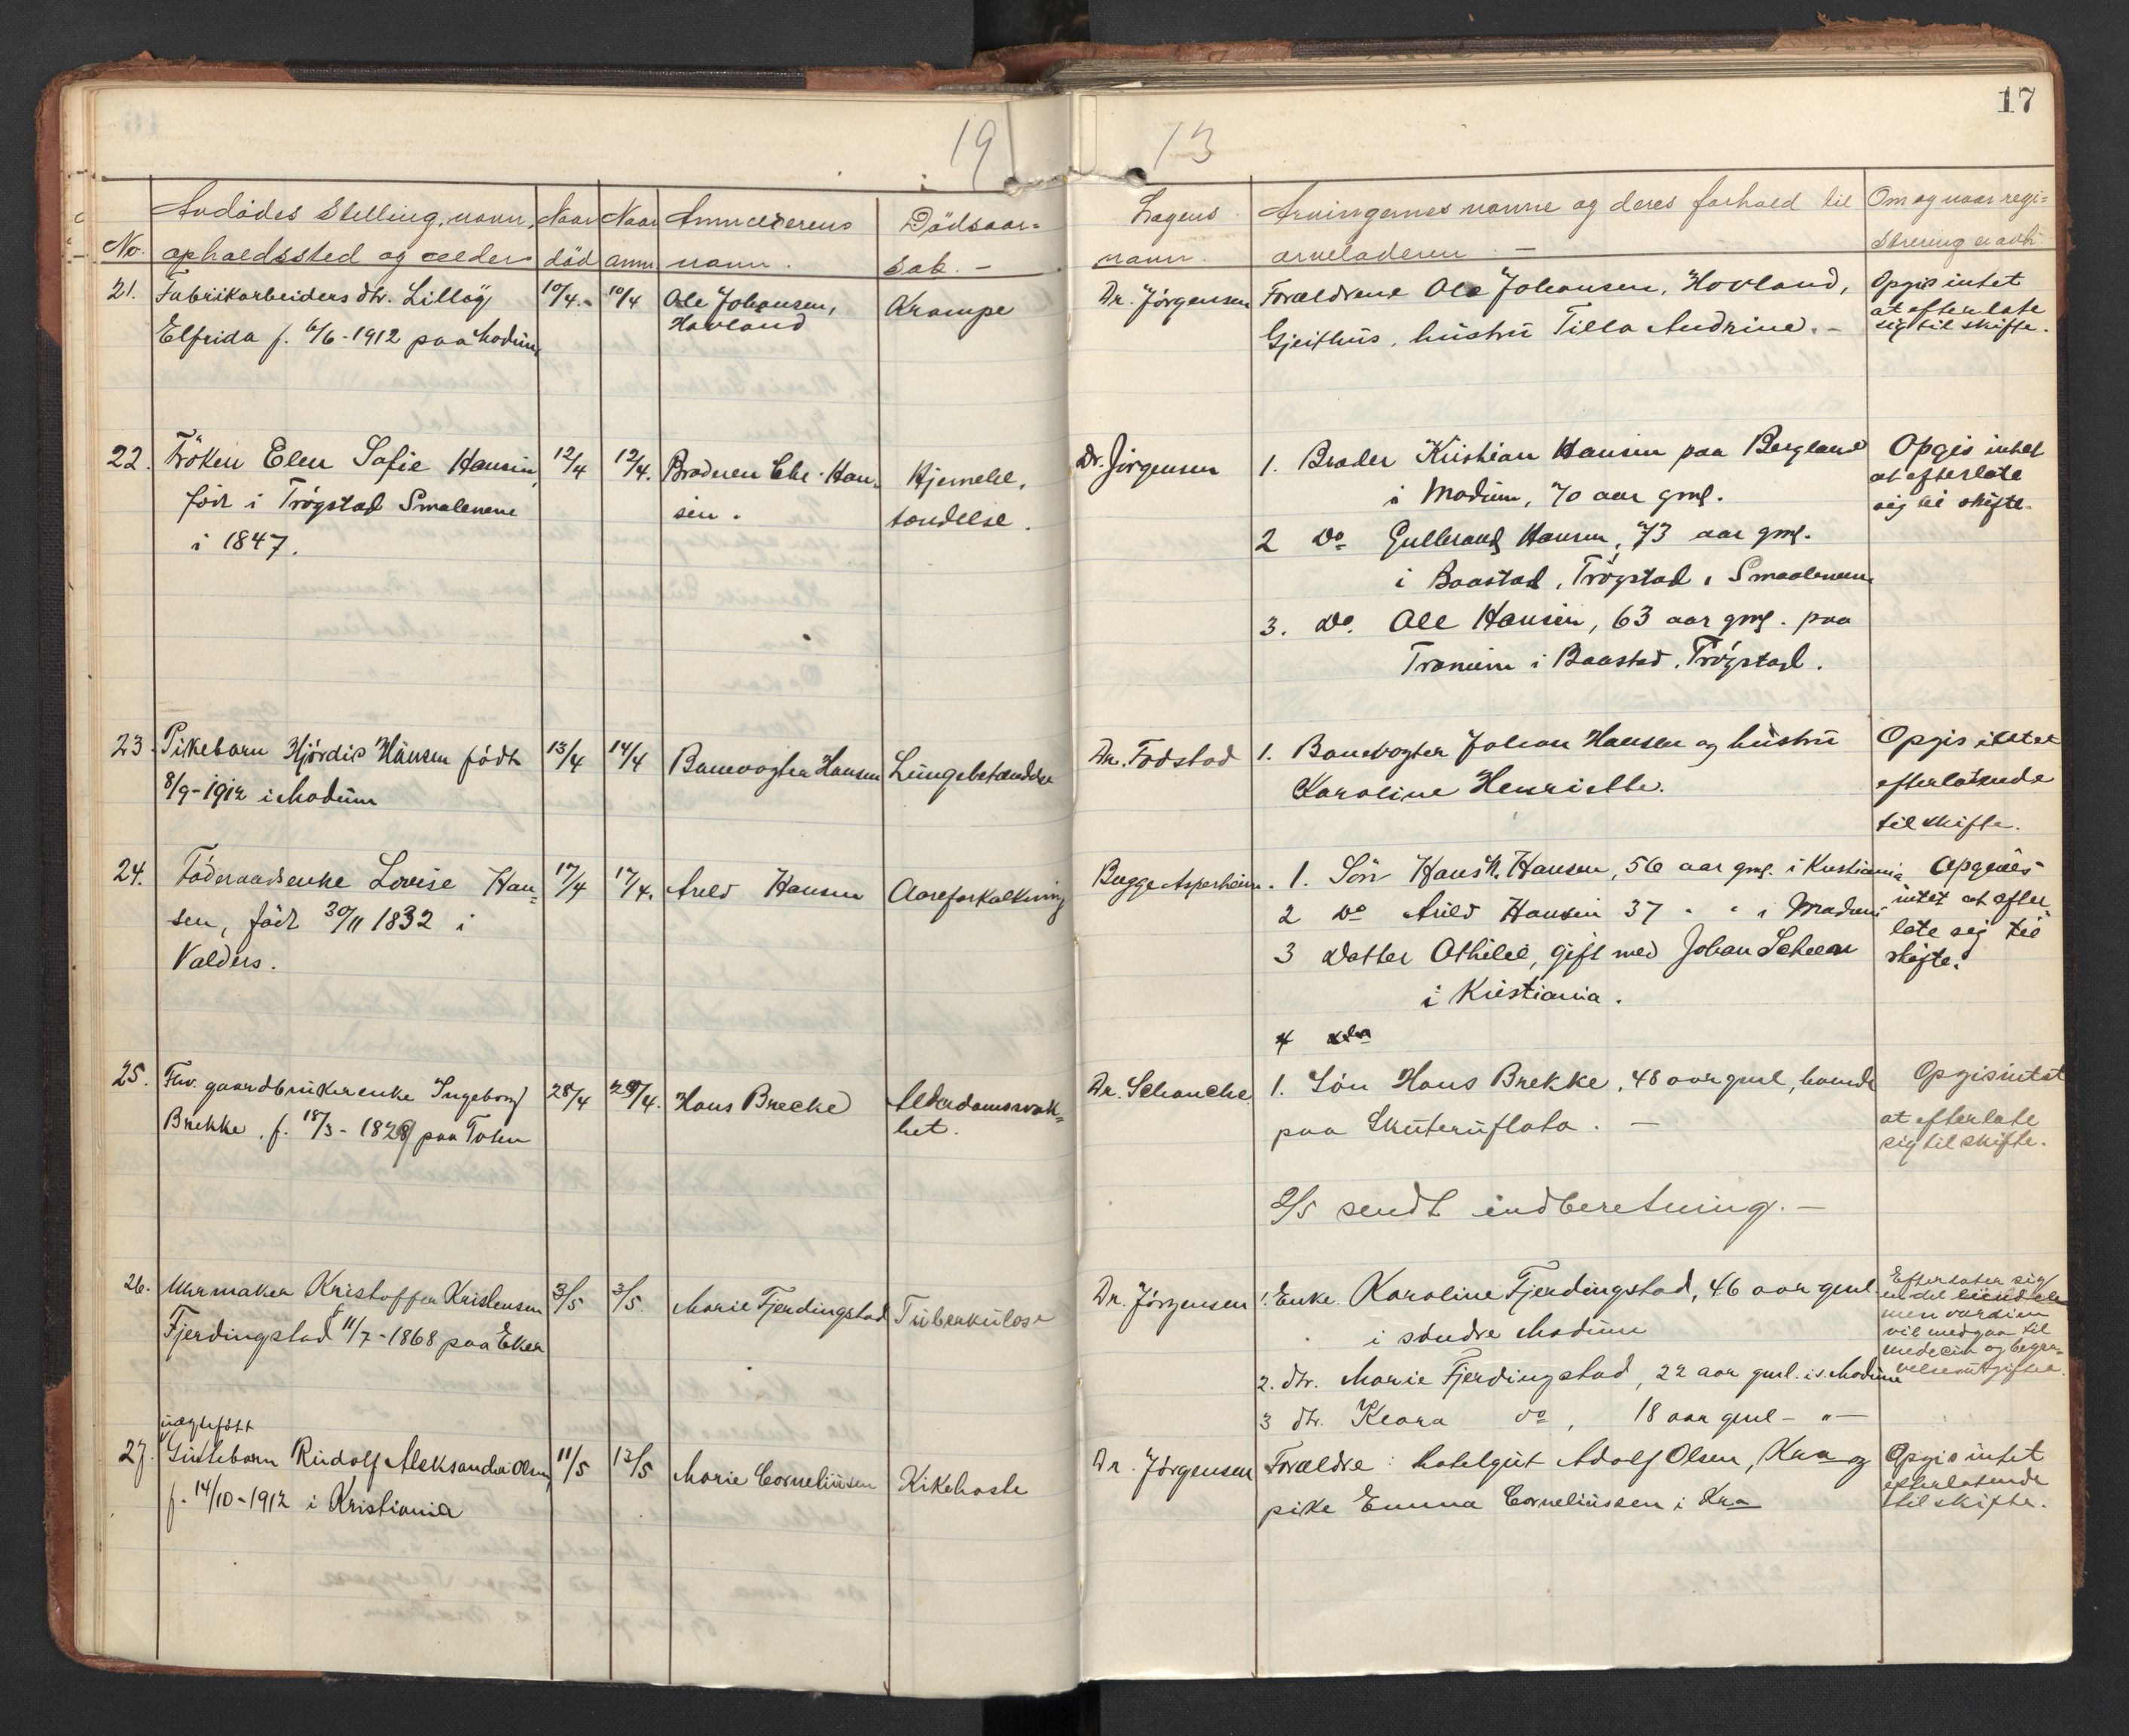 17
19 13
No.
Avdødes Stilling, navn, opholdssted og alder
Naar død
Naar anm
Anmelderens navn.
Dødsaar-
sak. -
Lægens navn.
Arvingernes navne og deres forhold til
arveladeren. -
Om og naar regi-
strering er avh.
21. Fabrikarbeiders dtr. Lilly
Elfrida f. 6/6-1912 paa Modum
10/4. 10/4
Ole Johansen,
Hovland
Krampe
Dr. Jørgensen
Forældrene Ole Johansen, Hovland,
Gjeithus, hustru Tilla Andrine. -
Opgis intet
at efterlate
sig til skifte.
22. Frøken Elen Sofie Hansen,
født i Trøgstad Smalenene
i 1847.
12/4 12/4.
Broderen Chr. Han-
sen.
Hjernebe-
tændelse.
Dr. Jørgensen
1. Broder Kristian Hansen paa Bergland
i Modum, 70 aar gml.
2 Do Gulbrand Hansen, 73 aar gml.
i Baastad, Trøgstad, Smaalenene
3. Do. Ole Hansen, 63 aar gml. paa
i Baastad, Trøgstad.
Opgis intet
at efterlate
sig til skifte.
23. Pikebarn Hjørdis Hansen født
8/9-1912 i Modum
13/4 14/4
Banevogter Hansen
Lungebetændelse
Dr. Fodstad
1. Banevogter Johan Hansen og hustru
Karoline Henriette.
Opgis intet
efterlatende
til skifte.
24. Føderaadsenke Lovise Han-
sen, født 30/11 1832 i
Valders.
17/4 17/4.
Arild Hansen
Aareforkalkning
Bugge Asperheim.
1. Søn Hans H. Hansen, 56 aar gml. i Kristiania
2 Do Arild Hansen 37 " " i Modum
3 Datter Othilie, gift med Johan Scheen
i Kristiania.
4 do
Opgives
intet at efter
late sig til
skifte.
25. Fhv. gaardbrukerenke Ingeborg
Brekke, f. 18/3-1828 paa Toten
28/4 29/4.
Hans Brecke
Alderdomssvak-
het.
Dr. Schanche
1. Søn Hans Brekke, 48 aar gml, boende
paa Skuteruflata. -
2/5 sendt indberetning. -
Opgis intet
at efterlate
sig til skifte.
26. Uhrmaker Kristoffer Kristensen
Fjerdingstad f 11/7-1868 paa Eker
3/5 3/5.
Marie Fjerdingstad
Tuberkulose
Dr. Jørgensen
1. Enke Karoline Fjerdingstad, 46 aar gml
i søndre Modum
2. dtr. Marie Fjerdingstad, 22 aar gml. i s. Modum
3 dtr. Klara do, 18 aar gml - " -
Efterlater sig
en del
men værdien
vil medgaa til
medecin og begra-
velsesutgifter.
27. uægtefødt
Guttebarn Rudolf Aleksander Olsen,
f. 14/10-1912 i Kristiania
11/5 13/5
Marie Corneliussen
Kikhoste
Dr. Jørgensen
Forældre: hotelgut Adolf Olsen, Kra og
pike Emma Corneliussen i Kra
Opgis intet
efterlatende
til skifte.